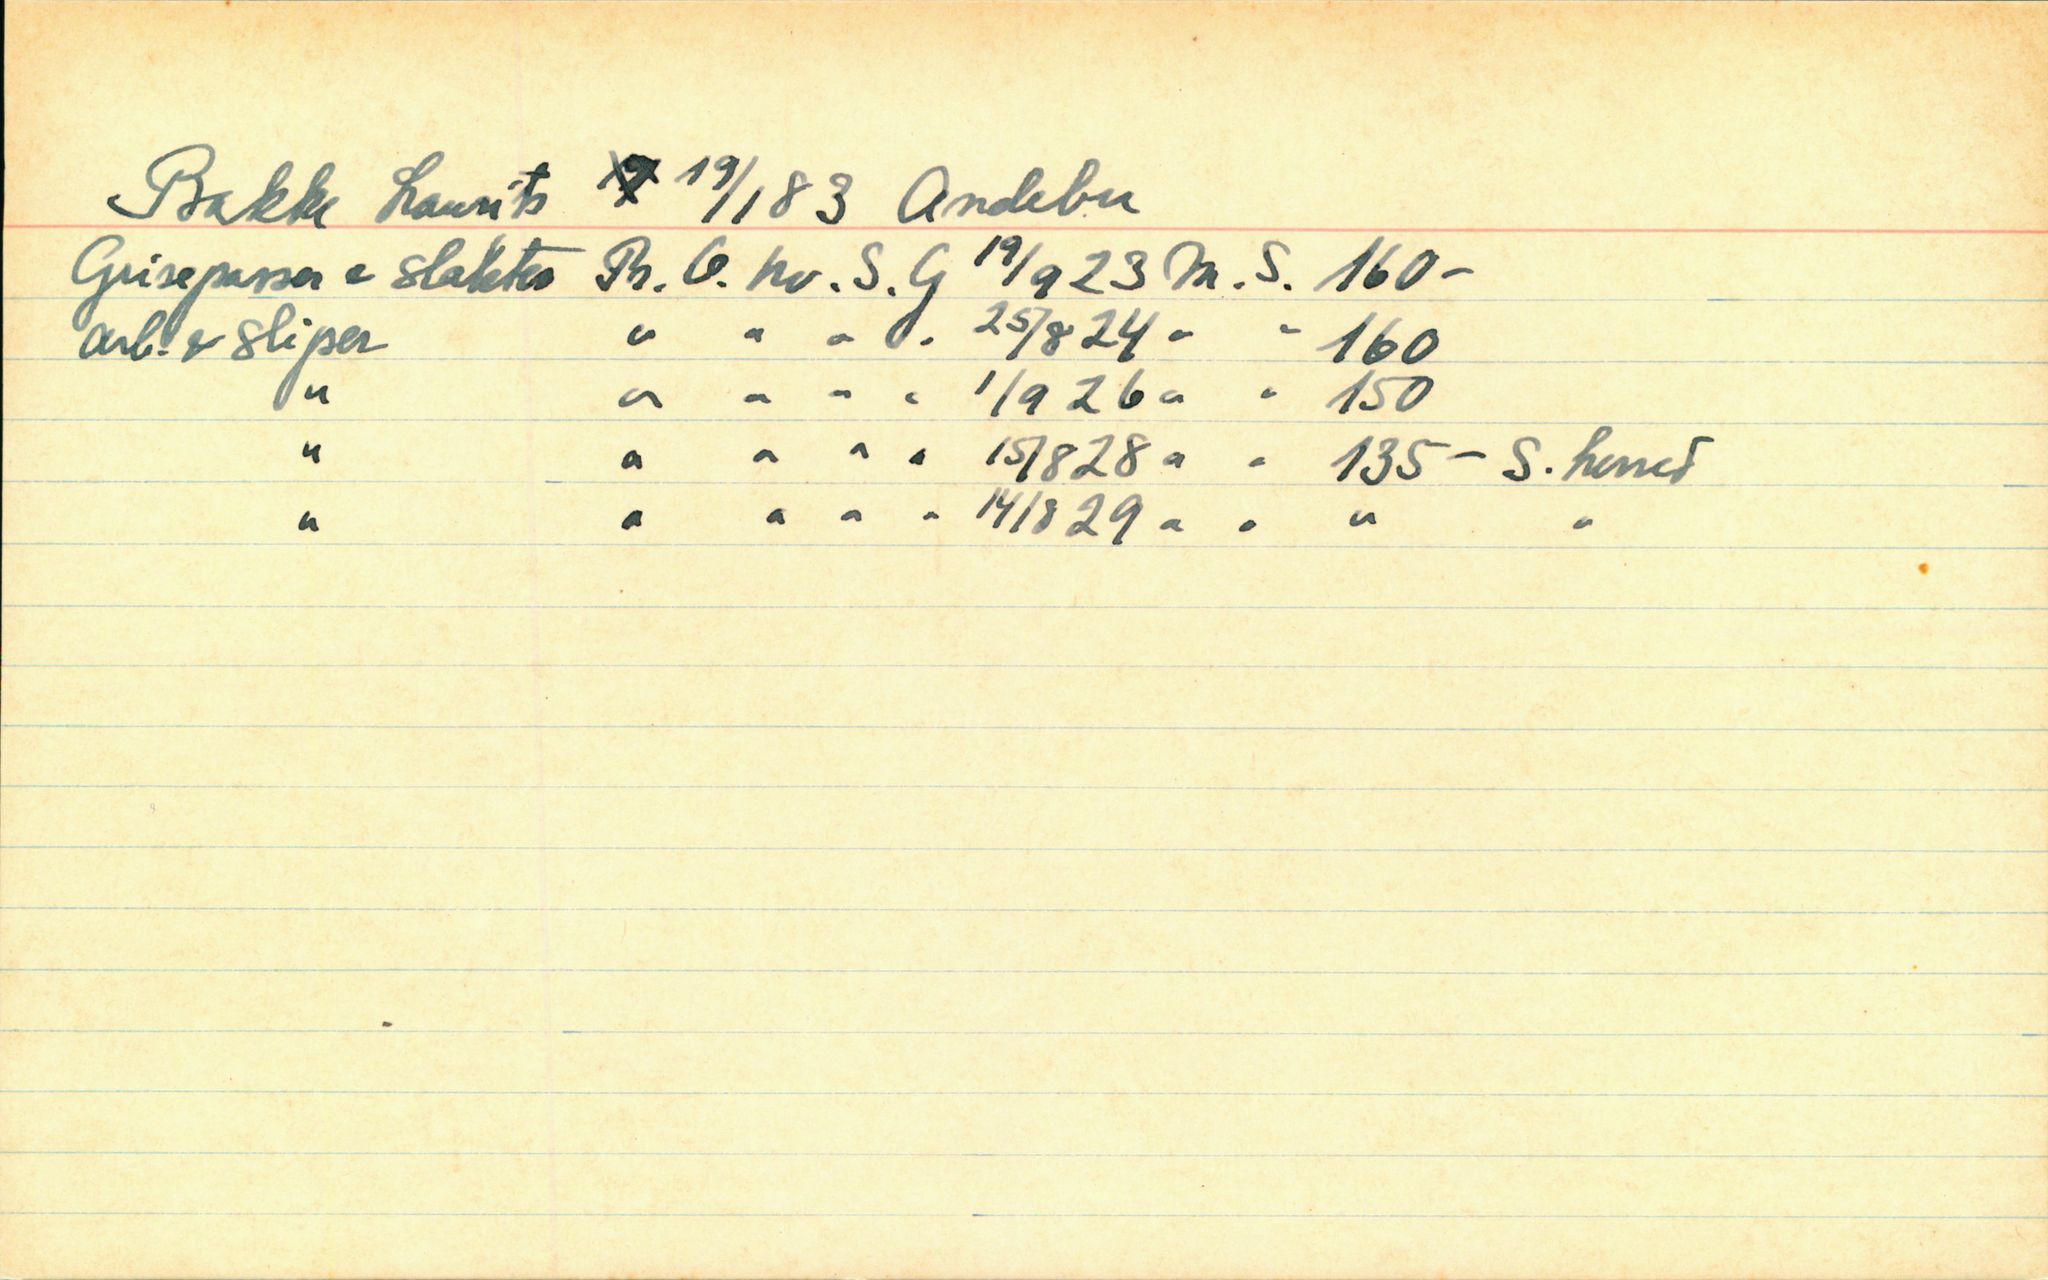 Bakke Laurits 19/1 83 Andebu
Grisepasser & slakter Pr. O. Hv. S. G 19/9 23 M. S. 160 -
Arb. & sliper " " " " 25/8 24 " " 160
" " " " " 1/9 26 " " 150
" " " " " 15/8 28 " " 135 - S. herred
" " " " " 14/8 29 " " " "